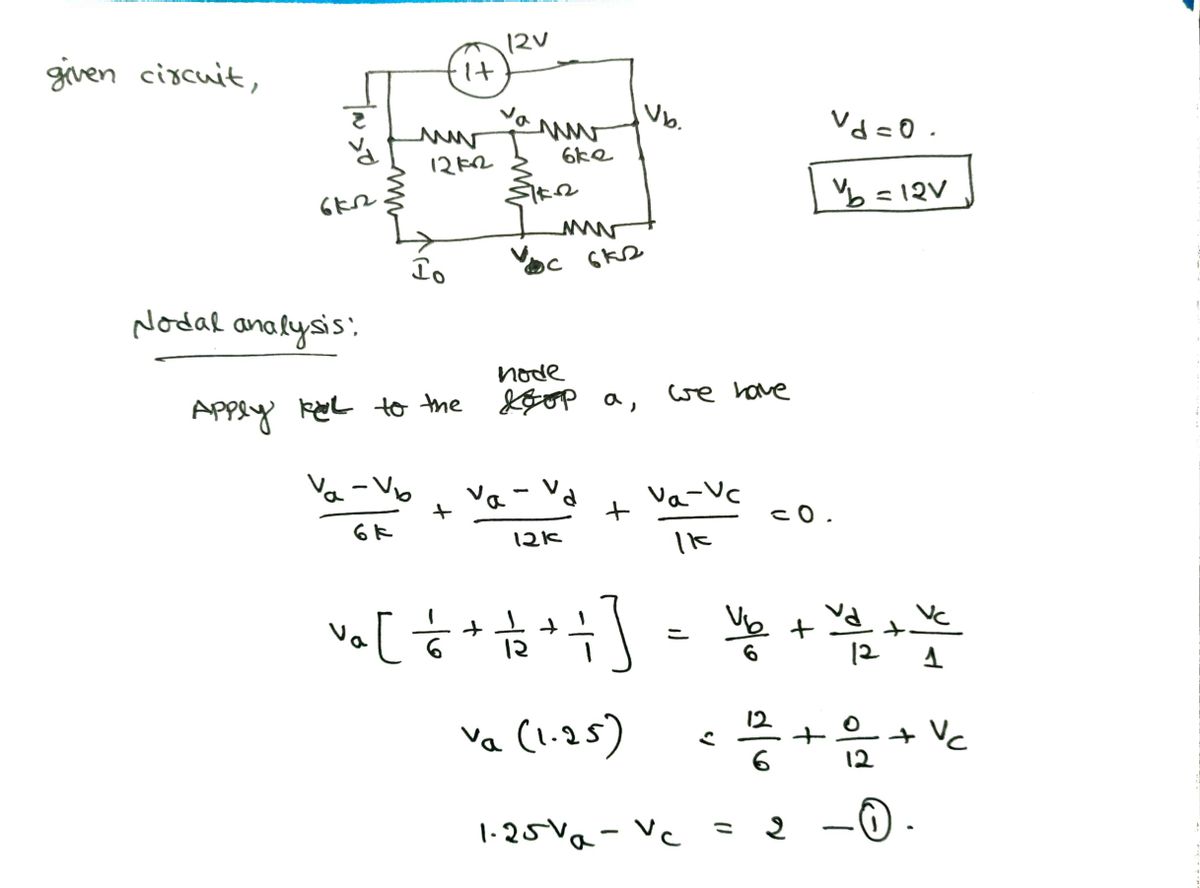 given circuit,
12V
Va
Vb.
Vd
12kΩ
6kΩ
1kΩ
6kΩ
I₀
Vc
6kΩ
Vd = 0.
Vb = 12V
Nodal analysis:
Apply KCL to the node a, we have
(Va - Vb)/6k + (Va - Vd)/12k + (Va - Vc)/1k = 0.
Va [1/6 + 1/12 + 1/1] = Vb/6 + Vd/12 + Vc/1
Va (1.25) = 12/6 + 0/12 + Vc
1.25Va - Vc = 2 - ①.